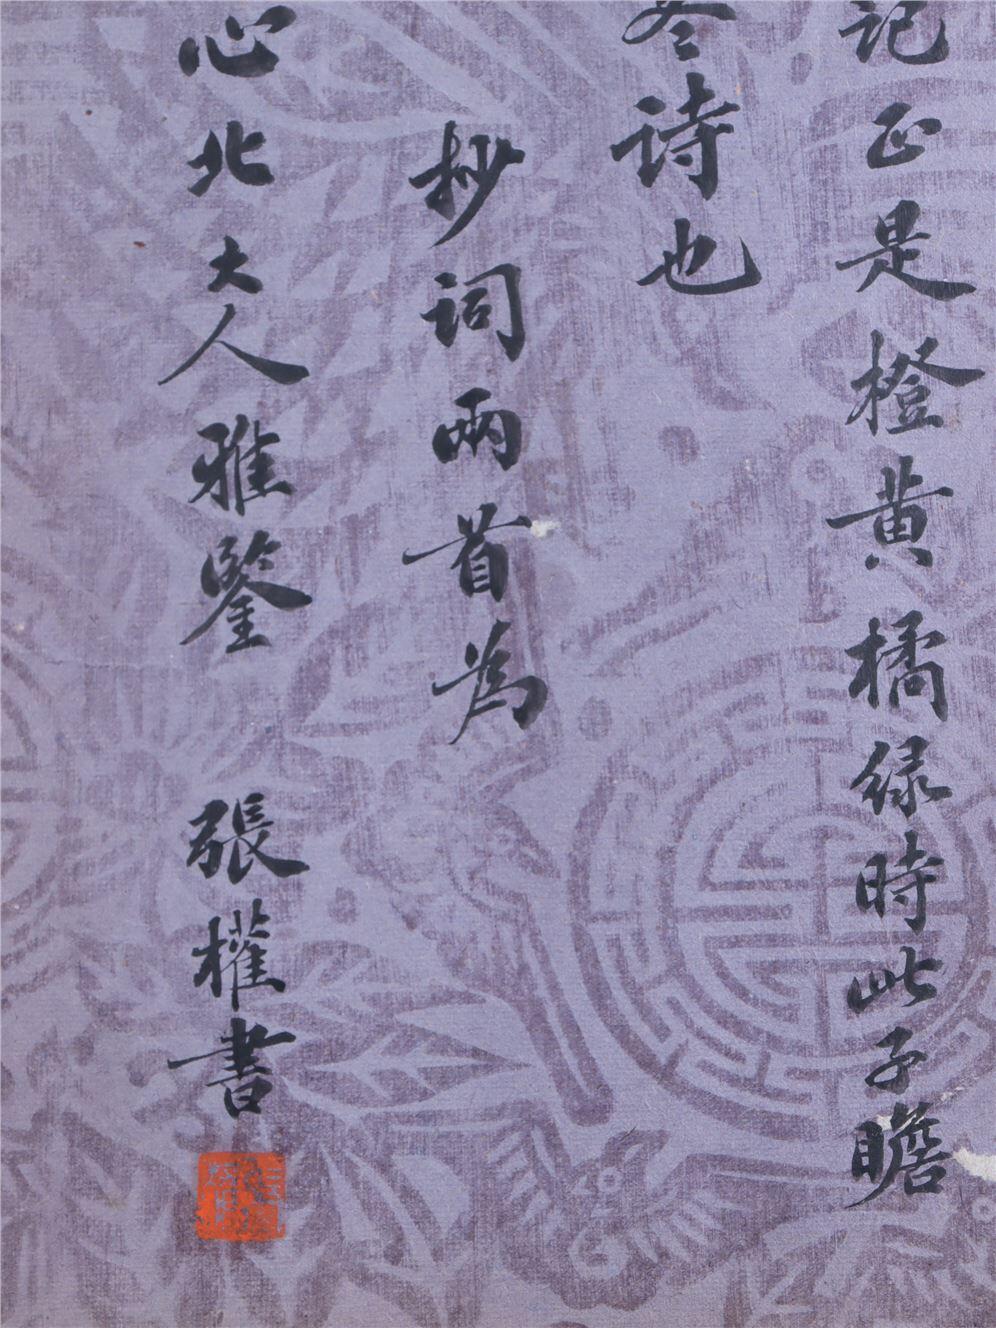 記正是橙黄橘緑時此子瞻
冬詩也
抄詞兩首為
心北大人雅鑒 張權書